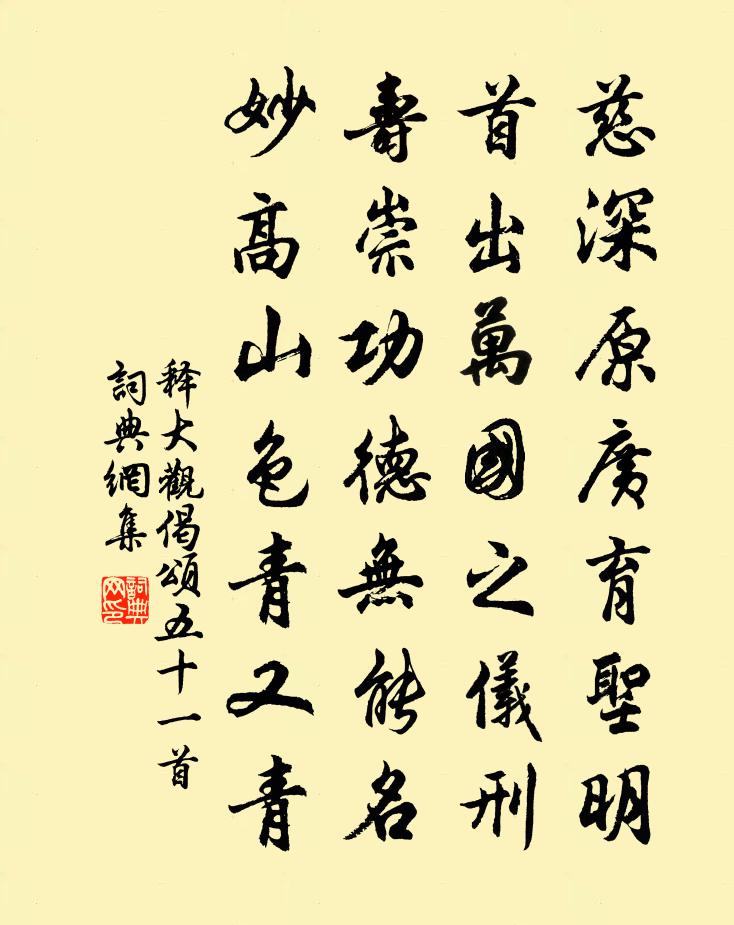 慈深原廣育聖明
首出萬國之儀刑
壽崇功德無能名
妙高山色青又青
释大觀偈頌五十一首
詞典網集
詞典
网印